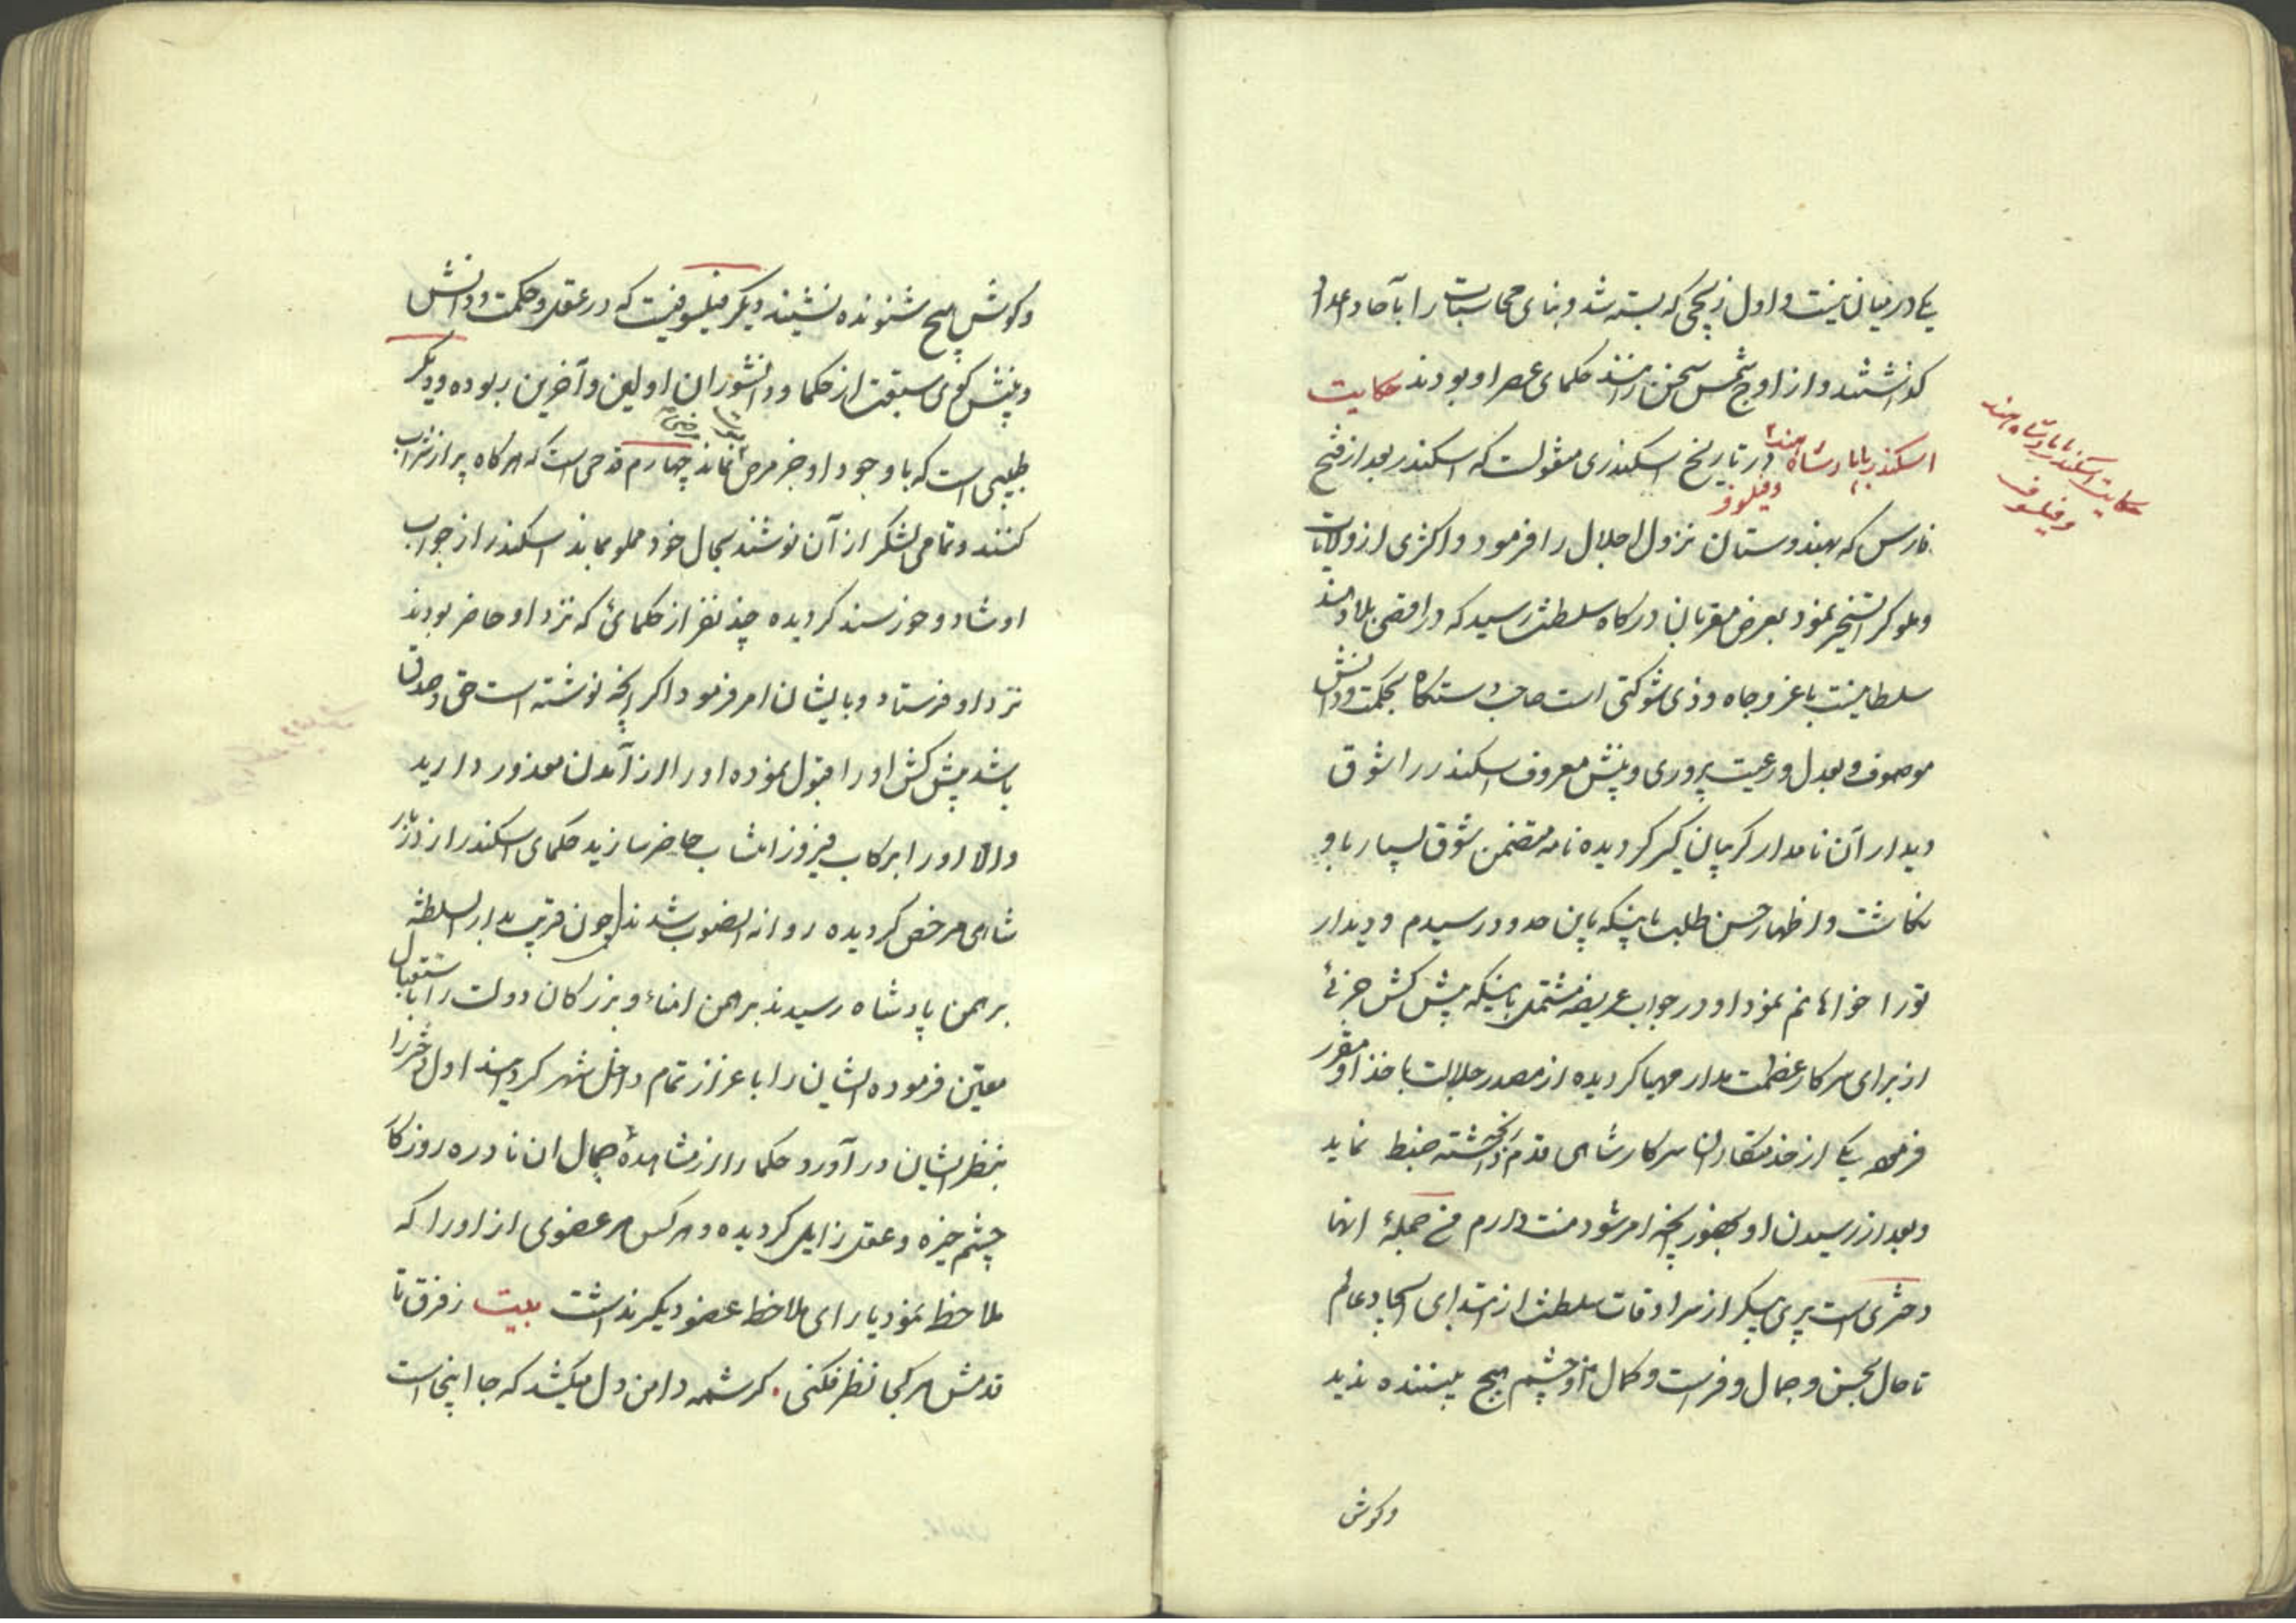 یکی در میان نیست و اول زیچی که بسته شد و بنای محاسبات را بآحاد و اعداد
گذاشتند و از اوج شمس سخن راندند حکمای عصر او بودند حکایت
اسکندر با پادشاه هند و فیلسوف در تاریخ اسکندری منقولست که اسکندر بعد از فتح
فارس که بهندوستان نزول اجلال را فرمود و اکثری از ولایات
و ملوک را تسخیر نمود بعرض مقربان درگاه سلطنت رسید که در اقصی بلاد هند
سلطانیست با عز و جاه و ذی شوکتی است صاحب دستگاه بحکمت و دانش
موصوف و بعدل و رعیت پروری و بینش معروف اسکندر را شوق
دیدار آن نامدار گریبان گیر گردیده نامه متضمن شوق بسیار باو
نگاشت و اظهار حسن طلب باینکه باین حدود رسیدم و دیدار
تو را خواهانم نمود او در جواب عریضه مشتمل باینکه پیش کش جزئی
از برای سرکار عظمت مدار مهیا گردیده از مصدر جلالت باخذ او مقرر
فرموده یکی از خدمتکاران سرکار شاهی قدم رنجه داشته ضبط نماید
و بعد از رسیدن او بحضور آنچه امر شود منت دارم من جملهٔ انها
دختری است پری پیکر از سرادقات سلطنت از ابتدای ایجاد عالم
تا حال بحسن و جمال و فراست و کمال او چشم هیچ بیننده ندید
وکوش
حکایت اسکندر با پادشاه هند
و فیلسوف
وکوش هیچ شنونده نشنیند دیگر فیلسوفیست که در عقل و حکمت و دانش
و بینش کوی سبقت از حکما و دانشوران اولین و آخرین ربوده و دیگر
طبیبی است که با وجود او جز مرض نماند چهارم قدحی است که هرکاه پر از شراب
کنند و تمامی لشکر از آن نوشند بحال خود مملو بماند اسکندر از جواب
او شاد و خورسند کردیده چند نفر از حکمائی که نزد او حاضر بودند
نزد او فرستاد و بایشان امر فرمود اکر آنچه نوشته است حق و صدق
باشد پیش کش او را قبول نموده او را از آمدن معذور دارید
والا او را برکاب فیروز انتساب حاضر سازید حکمای اسکندر از دربار
شاهی مرخص کردیده روانه الصوب شدند چون قریب بدار السلطنه
برهمن پادشاه رسیدند برهمن امناء و بزرکان دولت را باستقبال
معین فرموده ایشان را باعزاز تمام داخل شهر کردند اول دختر را
بنظر ایشان در آورد حکما را از مشاهدهٔ جمال ان نادره روزکار
چشم خیره و عقل زایل کردیده و هر کس هر عضوی از او را که
ملاحظه نمود یارای ملاحظه عضو دیگر نداشت بیت ز فرق تا
قدمش هر کجا نظر فکنی . کرشمه دامن دل میکشد که جا اینجاست